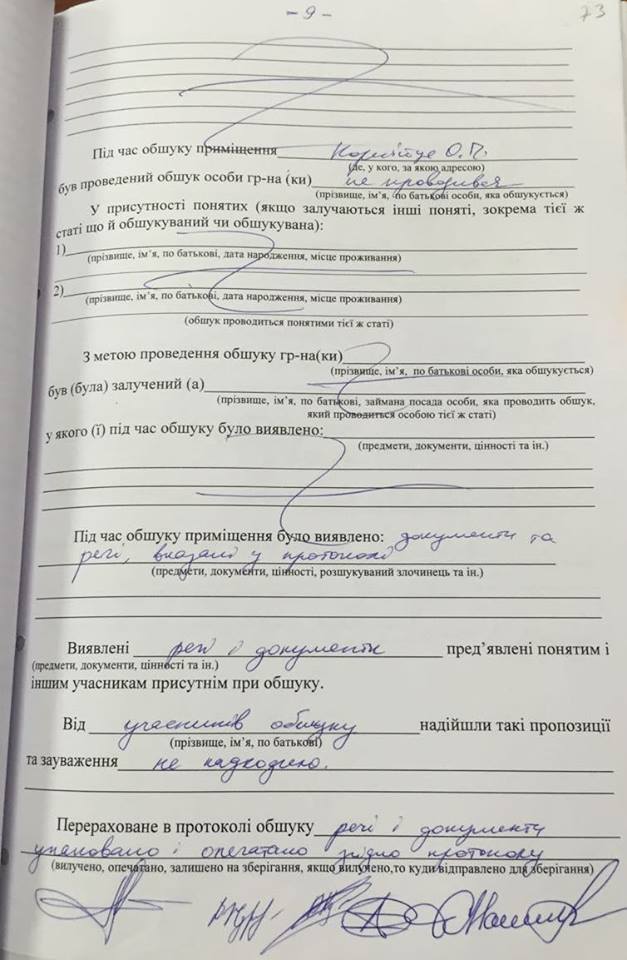 - 9 -
73
Під час обшуку приміщення О.П.
(де, у кого, за якою адресою)
був проведений обшук особи гр-на (ки) не проводився
(прізвище, ім'я, по батькові особи, яка обшукується)
У присутності понятих (якщо залучаються інші поняті, зокрема тієї ж
статі що й обшукуваний чи обшукувана):
1)
(прізвище, ім'я, по батькові, дата народження, місце проживання)
2)
(прізвище, ім'я, по батькові, дата народження, місце проживання)
(обшук проводиться понятими тієї ж статі)
З метою проведення обшуку гр-на(ки)
(прізвище, ім'я, по батькові особи, яка обшукується)
був (була) залучений (а)
(прізвище, ім'я, по батькові, займана посада особи, яка проводить обшук,
який проводиться особою тієї ж статі)
у якого (ї) під час обшуку було виявлено:
(предмети, документи, цінності та ін.)
Під час обшуку приміщення було виявлено: документи та
речі, вказані у протоколі
(предмети, документи, цінності, розшукуваний злочинець та ін.)
Виявлені речі і документи пред'явлені понятим і
(предмети, документи, цінності та ін.)
іншим учасникам присутнім при обшуку.
Від учасників обшуку надійшли такі пропозиції
(прізвище, ім'я, по батькові)
та зауваження не надходило.
Перераховане в протоколі обшуку речі і документи
упаковано і опечатано згідно протоколу
(вилучено, опечатано, залишено на зберігання, якщо вилучено,то куди відправлено для зберігання)